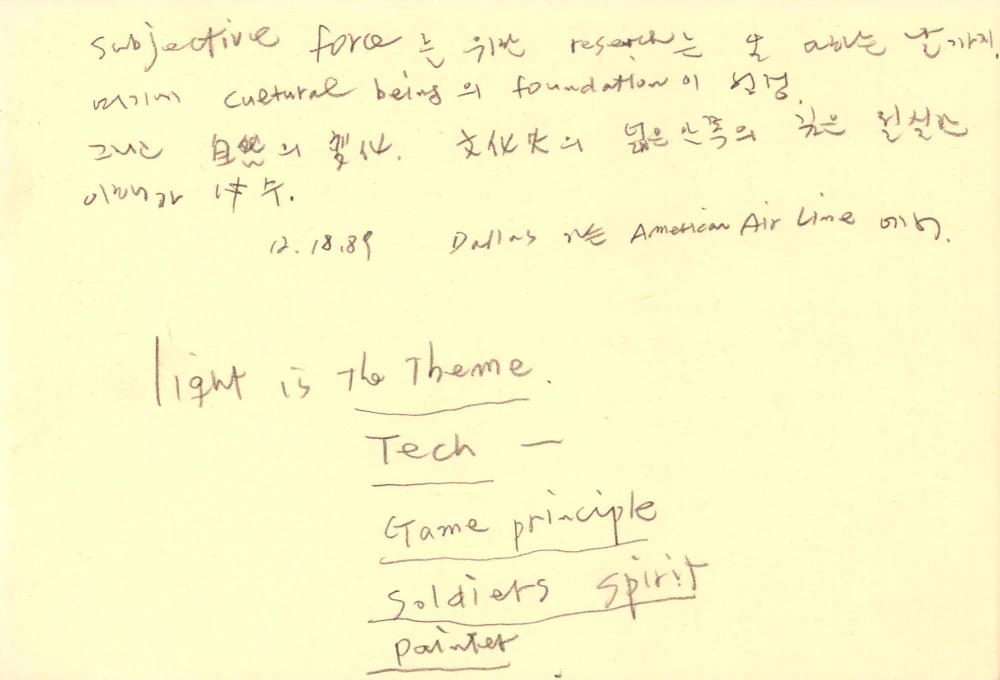 subjective force는 위한 research는 날까지.
여기에 cultural being의 foundation이 선정.
그리고 自然의 變化. 文化史의 넓은 안쪽의 깊은
12.18.89 Dallas 가는 American Air Line 에서.
light is The Theme.
Tech —
Game principle
Soldiers spirit
painter